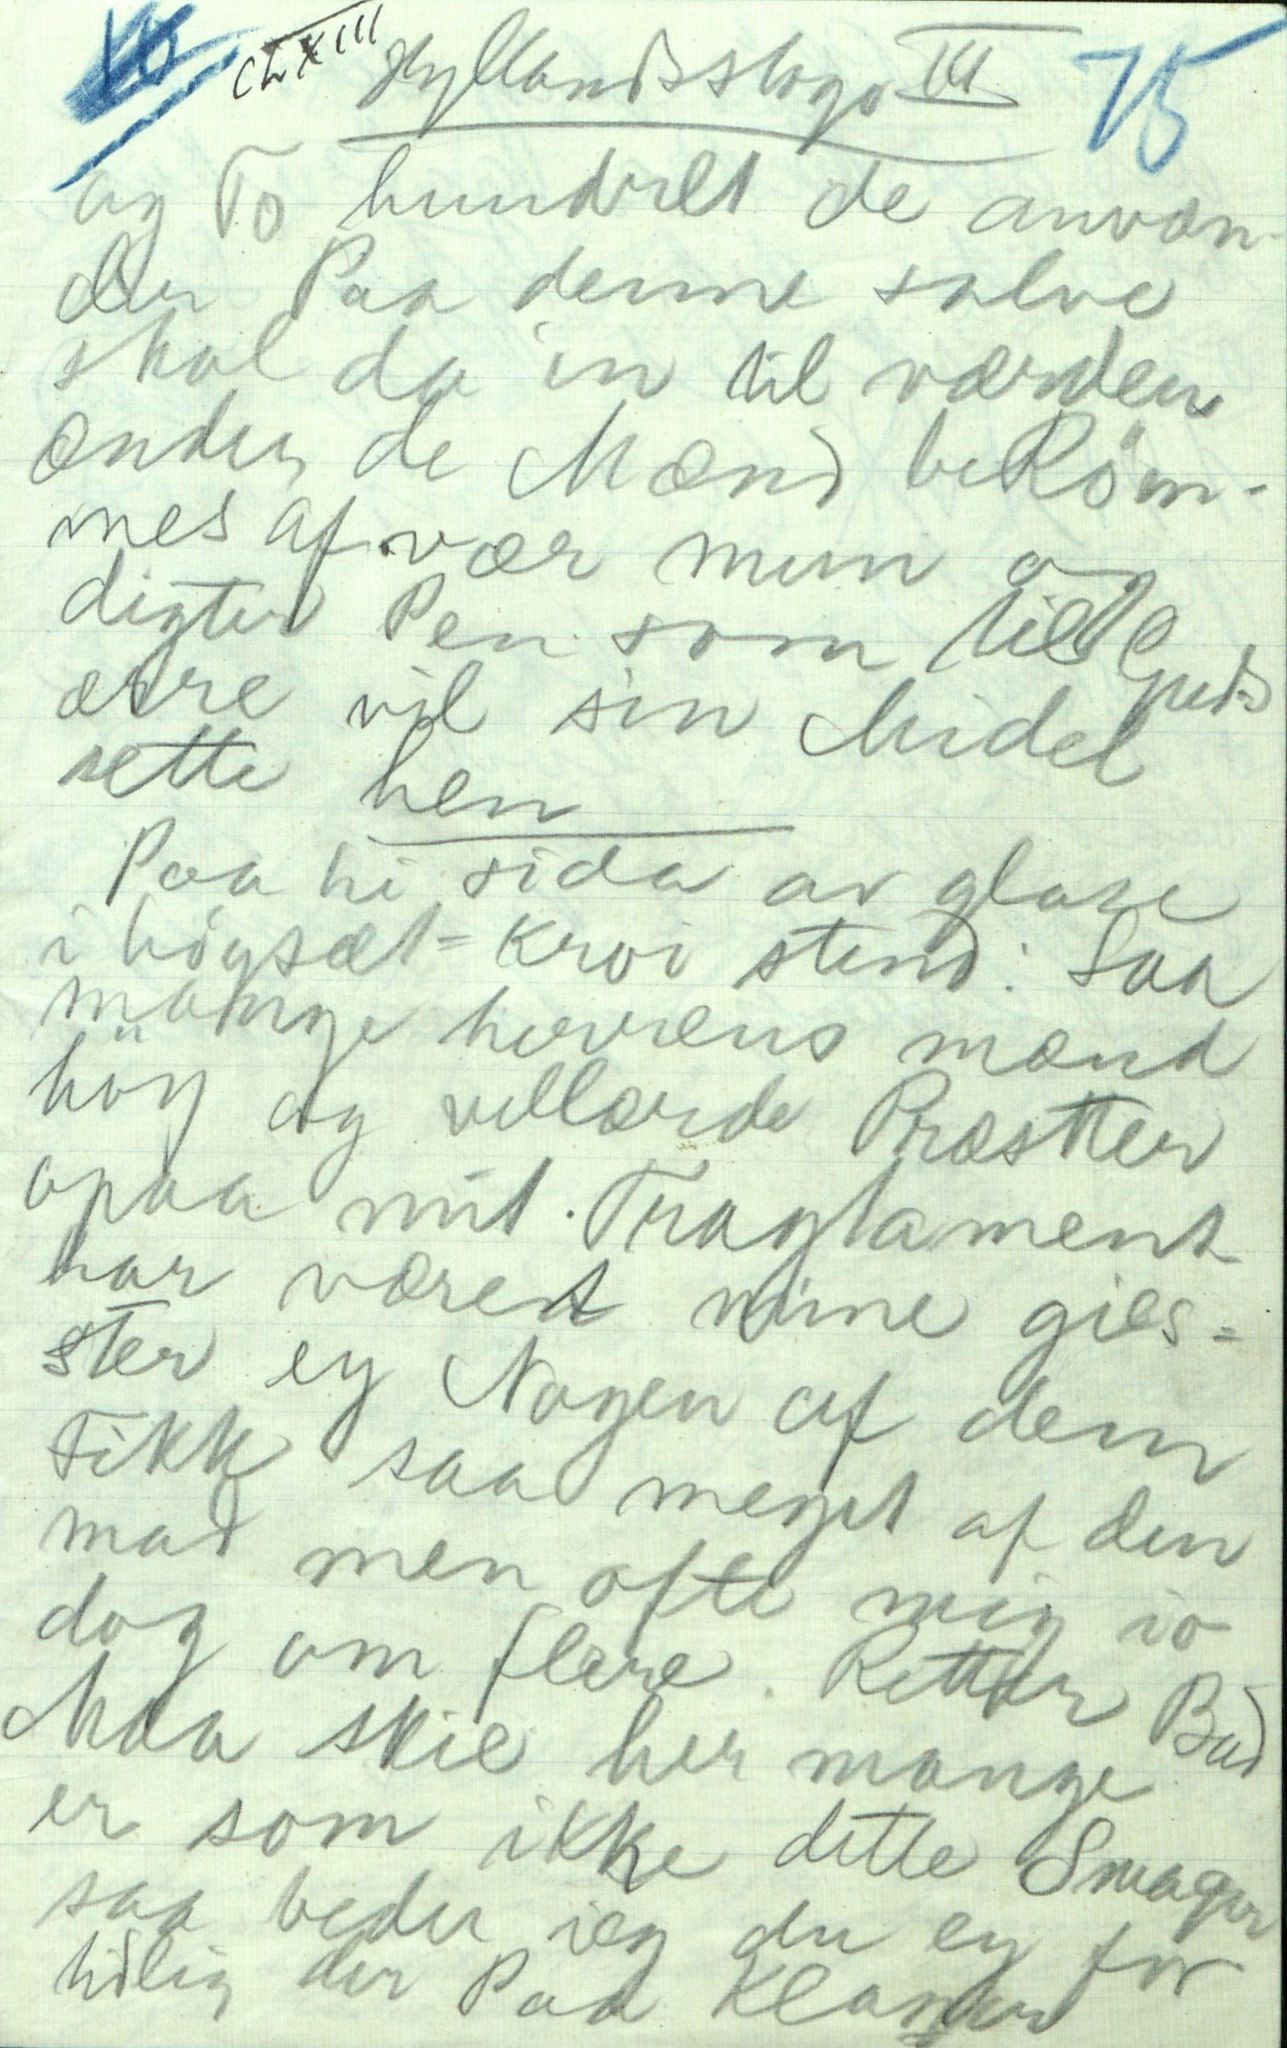 Ch XIII Hyllandsstogo III 75
og To hundrelt de anvæn-
der Paa denne salve
skal da in til verden
ender de Mænd beRöm-
mes af vær mun og
digter Pen som til Guds
ærre vil sin Midel
sette hen
Paa hi sida av glase
i högsæt=kroi stend: Saa
mange herrens mænd
höy og vellærde Præstter
opaa mit Tragtament
har værest mine gies=
ster ey Nogen af dem
Fikk saa meget af den
mad men ofte mig io
dog om flere Retter Bad
Maa skie her mange
er som ikke dette Smager
saa beder ieg du ey for
hilig der Paa Klager